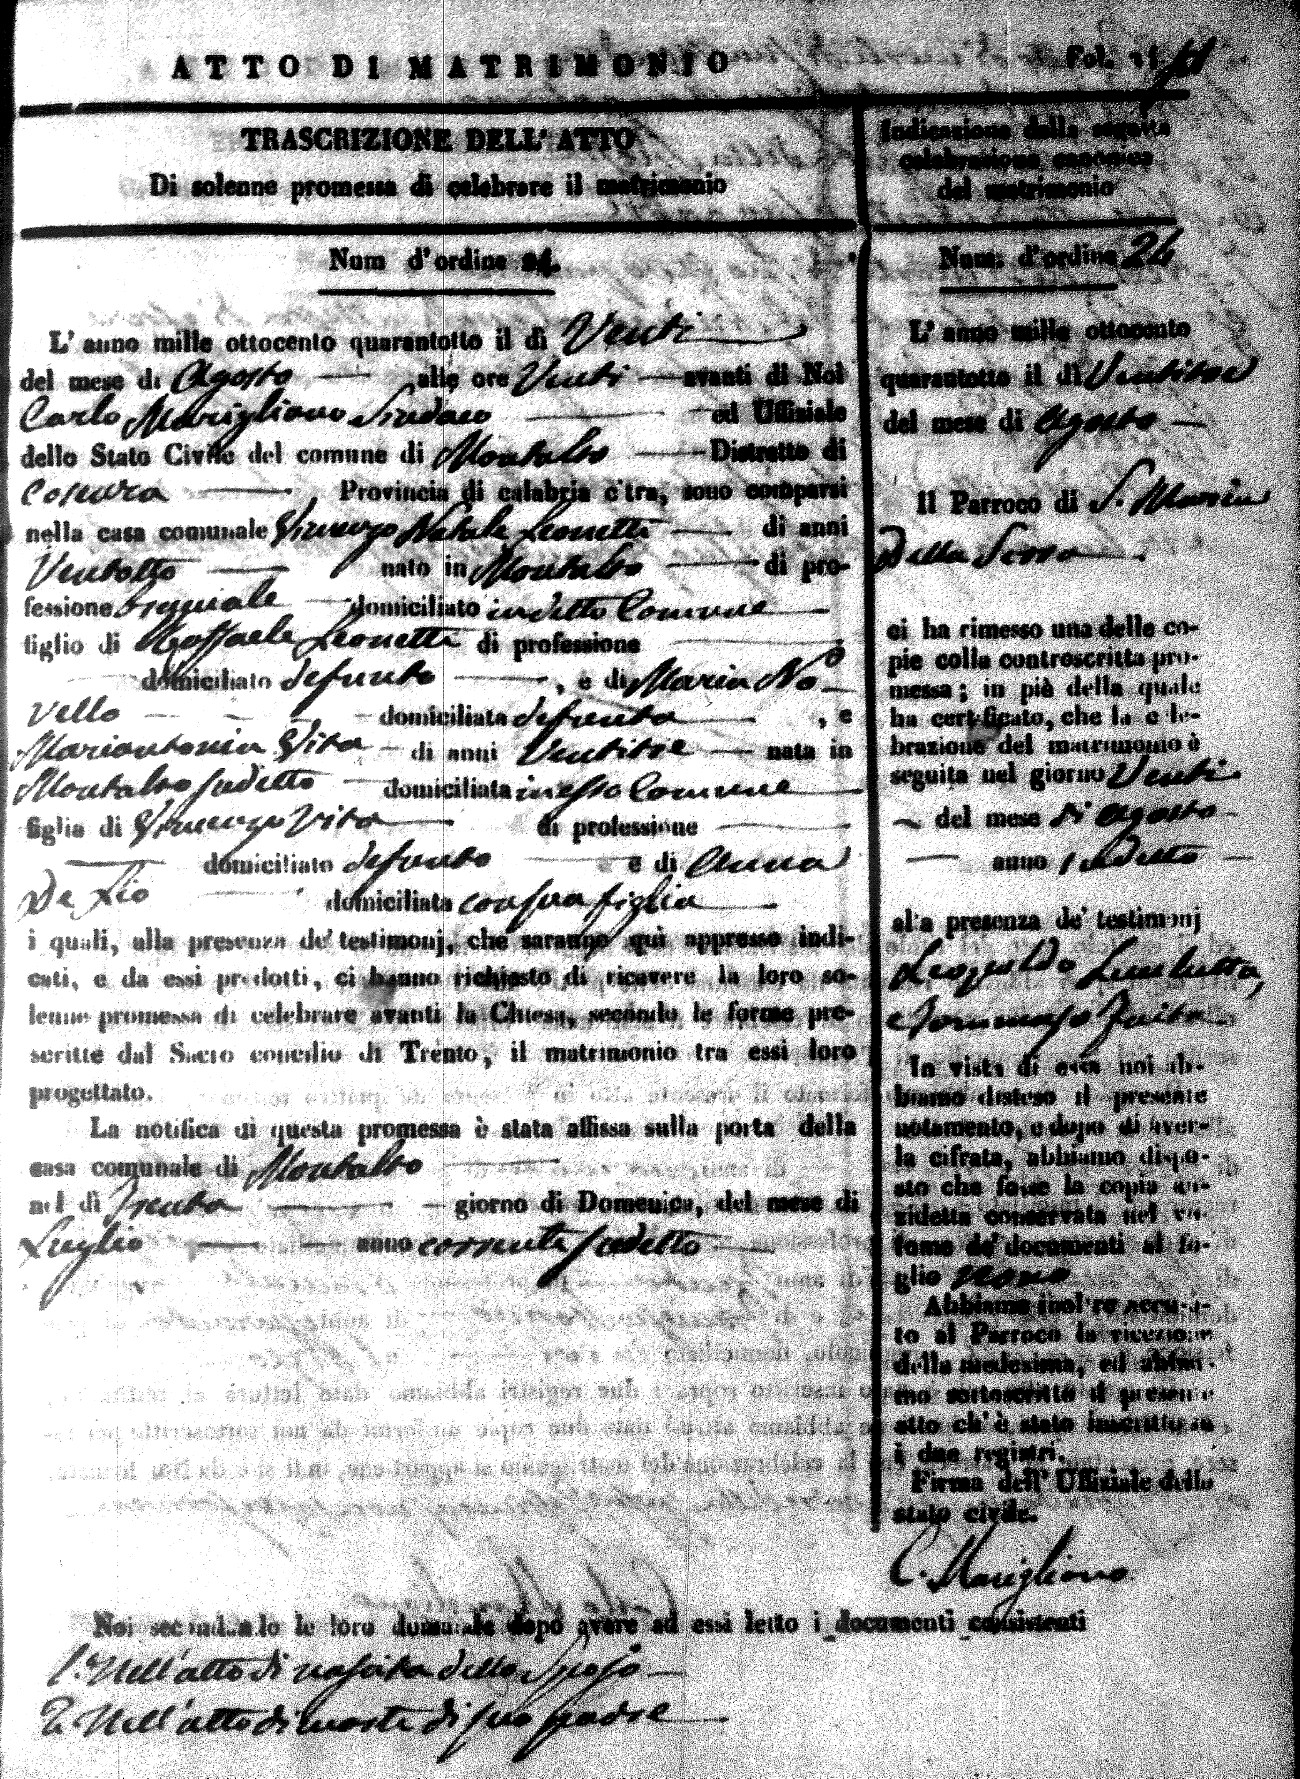 ATTO DI MATRIMONIO
Fol.
TRASCRIZIONE DELL' ATTO
Di solenne promessa di celebrare il matrimonio
Num d'ordine
L' anno mille ottocento quarantotto il dì Venti
del mese di Agosto alle ore Venti avanti di Noi
Carlo Marigliano Sindaco ed Uffiziale
dello Stato Civile del comune di Montalto Distretto di
Cosenza Provincia di calabria citra, sono comparsi
nella casa comunale Natale Leonetti di anni
Ventotto nato in Montalto di pro-
fessione domiciliato in detto Comune
figlio di Raffaele Leonetti di professione
domiciliato defunto , e di Maria No
vello domiciliata defunta , e
Mariantonia Vita di anni Ventitre nata in
Montalto sudetto domiciliata in esso Comune
figlia di Vita di professione
domiciliato defunto e di Anna
De Lio domiciliata con sua figlia
i quali, alla presenza de' testimonj, che saranno quì appresso indi-
cati, e da essi prodotti, ci hanno richiesto di ricevere la loro so-
lenne promessa di celebrare avanti la Chiesa, secondo le forme pre-
scritte dal Sacro concilio di Trento, il matrimonio tra essi loro
progettato.
La notifica di questa promessa è stata affissa sulla porta della
casa comunale di Montalto
nel dì Trenta giorno di Domenica, del mese di
Luglio anno corrente sudetto
Indicazione della seguita
celebrazione canonica
del matrimonio
Num. d'ordine 24
L' anno mille ottocento
quarantotto il dì Ventitre
del mese di Agosto
Il Parroco di S. Maria
Della Serra
ci ha rimesso una delle co-
pie colla controscritta pro-
messa; in piè della quale
ha certificato, che la cele-
brazione del matrimonio è
seguita nel giorno Venti
del mese di Agosto
anno sudetto
alla presenza de' testimonj
Leopoldo
Tommaso
In vista di essa noi ab-
biamo disteso il presente
notamento, e dopo di aver-
la cifrata, abbiamo dispo-
sto che fosse la copia an-
zidetta conservata nel vo-
lume de' documenti al fo-
glio nono
Abbiamo inoltre accusa-
to al Parroco la ricezione
della medesima, ed abbia-
mo sottoscritto il presente
atto ch' è stato inscritto su
i due registri.
Firma dell' Uffiziale dello
stato civile.
C. Marigliano
Noi secondando le loro domande dopo avere ad essi letto i documenti consistenti
1. Nell'atto di nascita dello Sposo
2. Nell'atto di morte di suo padre